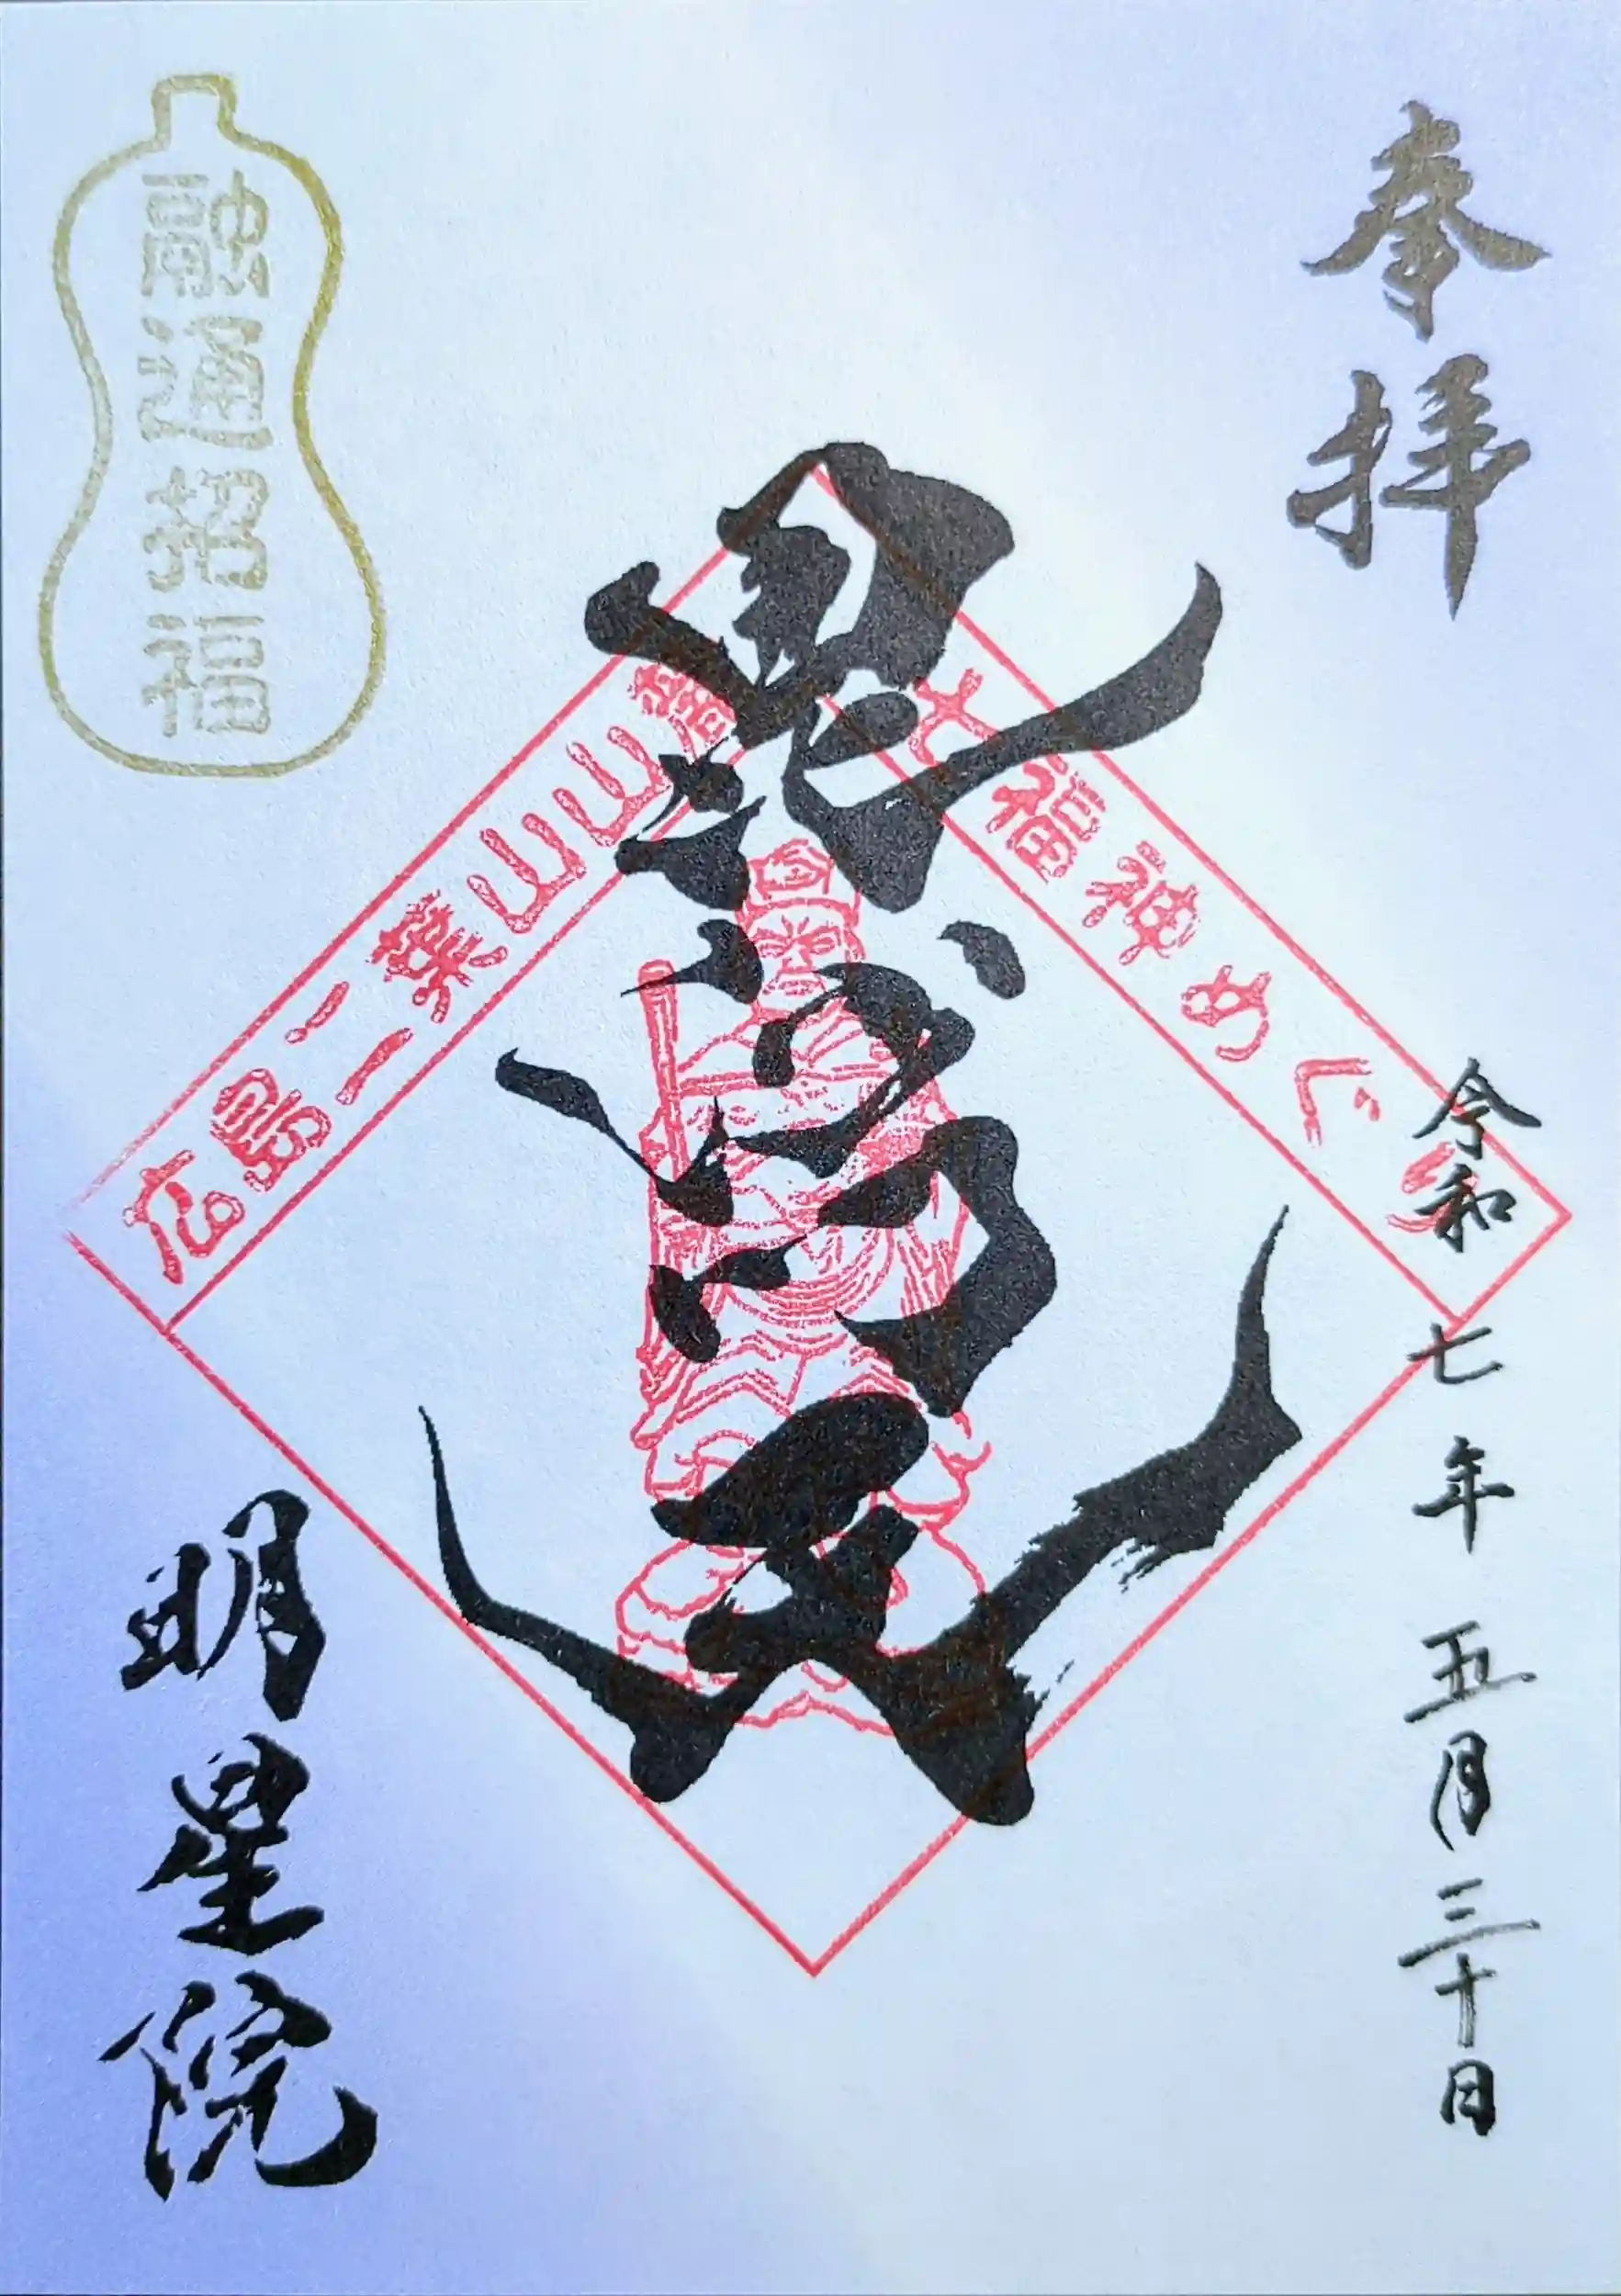 奉拝
令和七年五月三十日
毘沙門天
広島二葉山山麓
七福神めぐり
融通招福
明星院